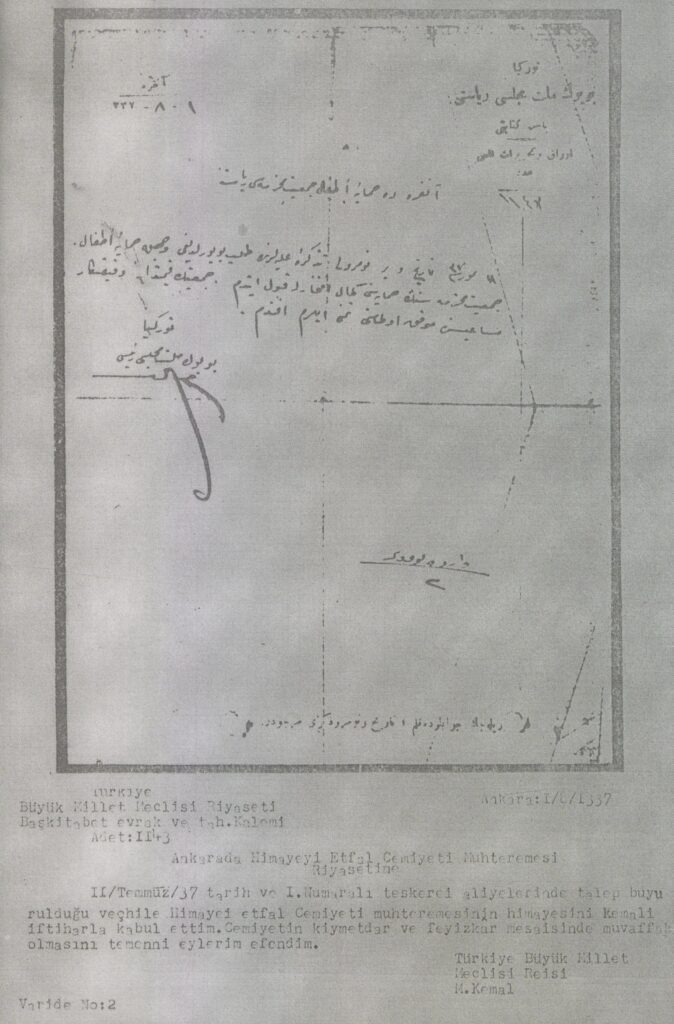 توركيا
آنقره
بيوك ملت مجلسى رياستى
١ - ٨ - ٣٣٧
باش كتابتى
اوراق و تحريرات قلمى
عدد
١١٤٣
آنقره ده حمايۀ اطفال جمعيت محترمه سى رياستنه
تاريخ و بر نومرولى تذكرۀ عليه لرنده طلب بيورلديغى وجهله حمايۀ اطفال
جمعيت محترمه سنك حمايه سنى كمال افتخارله قبول ايتدم . جمعيتك قيمتدار و فيضكار
مساعيسنده موفق اولماسنى تمنى ايلرم افندم .
توركيا
بيوك ملت مجلسى رئيسى
وارده نومرو
٢
Türkiye
Büyük Millet Meclisi Riyaseti
Ankara:I/8/1337
Başkitabet evrak ve tah.Kalemi
Adet:II43
Ankarada Himayeyi Etfal Cemiyeti Muhteremesi
Riyasetine
II/Temmuz/37 tarih ve I.Numaralı teskerei aliyelerinde talep buyu
rulduğu veçhile Himayei etfal Cemiyeti muhteremesinin himayesini Kemali
iftiharla kabul ettim.Cemiyetin kiymetdar ve feyizkar mesaisinde muvaffak
olmasını temenni eylerim efendim.
Türkiye Büyük Millet
Meclisi Reisi
M.Kemal
Varide No:2